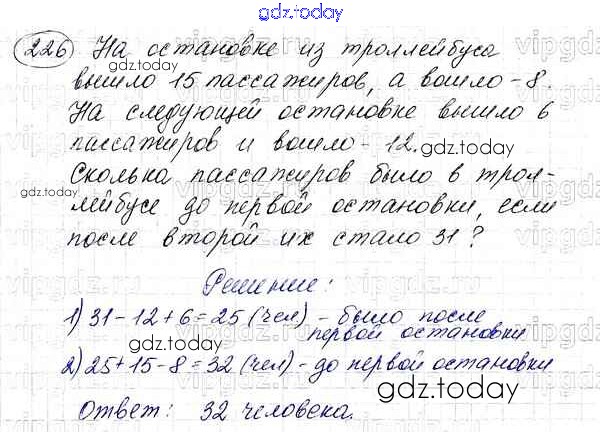 gdz.today
226 На остановке из троллейбуса
вышло 15 пассажиров, а вошло - 8.
На следующей остановке вышло 6
пассажиров и вошло - 12. gdz.today
gdz.today
Сколька пассажиров было в трол-
лейбусе до первой остановки, если
после второй их стало 31?
Решение:
1) 31 - 12 + 6 = 25 (чел) - было после
первой остановки
2) 25 + 15 - 8 = 32 (чел) - до первой остановки
gdz.today
Ответ: 32 человека.